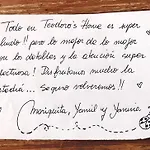 Todo en Teodoro's Home es super
lindo!! pero lo mejor de lo mejor
son lo detalles y la atención super
afectuosa! Disfrutamos mucho la
estadía... Seguro volveremos!!
Mariquita, Yamil y Yanina